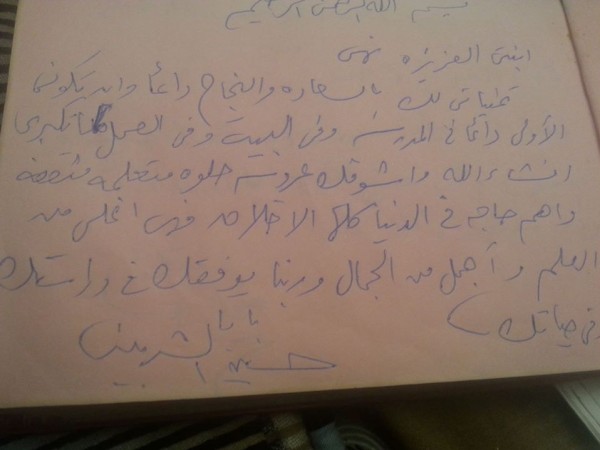 بسم الله الرحمن الرحيم
ابنتى العزيزه نهى
تمنياتى لك بالسعاده والنجاح دائما وان تكونى
الأولى دائما فى المدرسة وفى البيت وفى العمل لما تكبرى
انشاء الله واشوفك عروسه حلوه متعلمه مثقفه
واهم حاجه فى الدنيا كلها الاخلاق فهى اغلى من
العلم وأجمل من الجمال وربنا يوفقك فى دراستك
وفى حياتك
بابا
حسين الشربينى